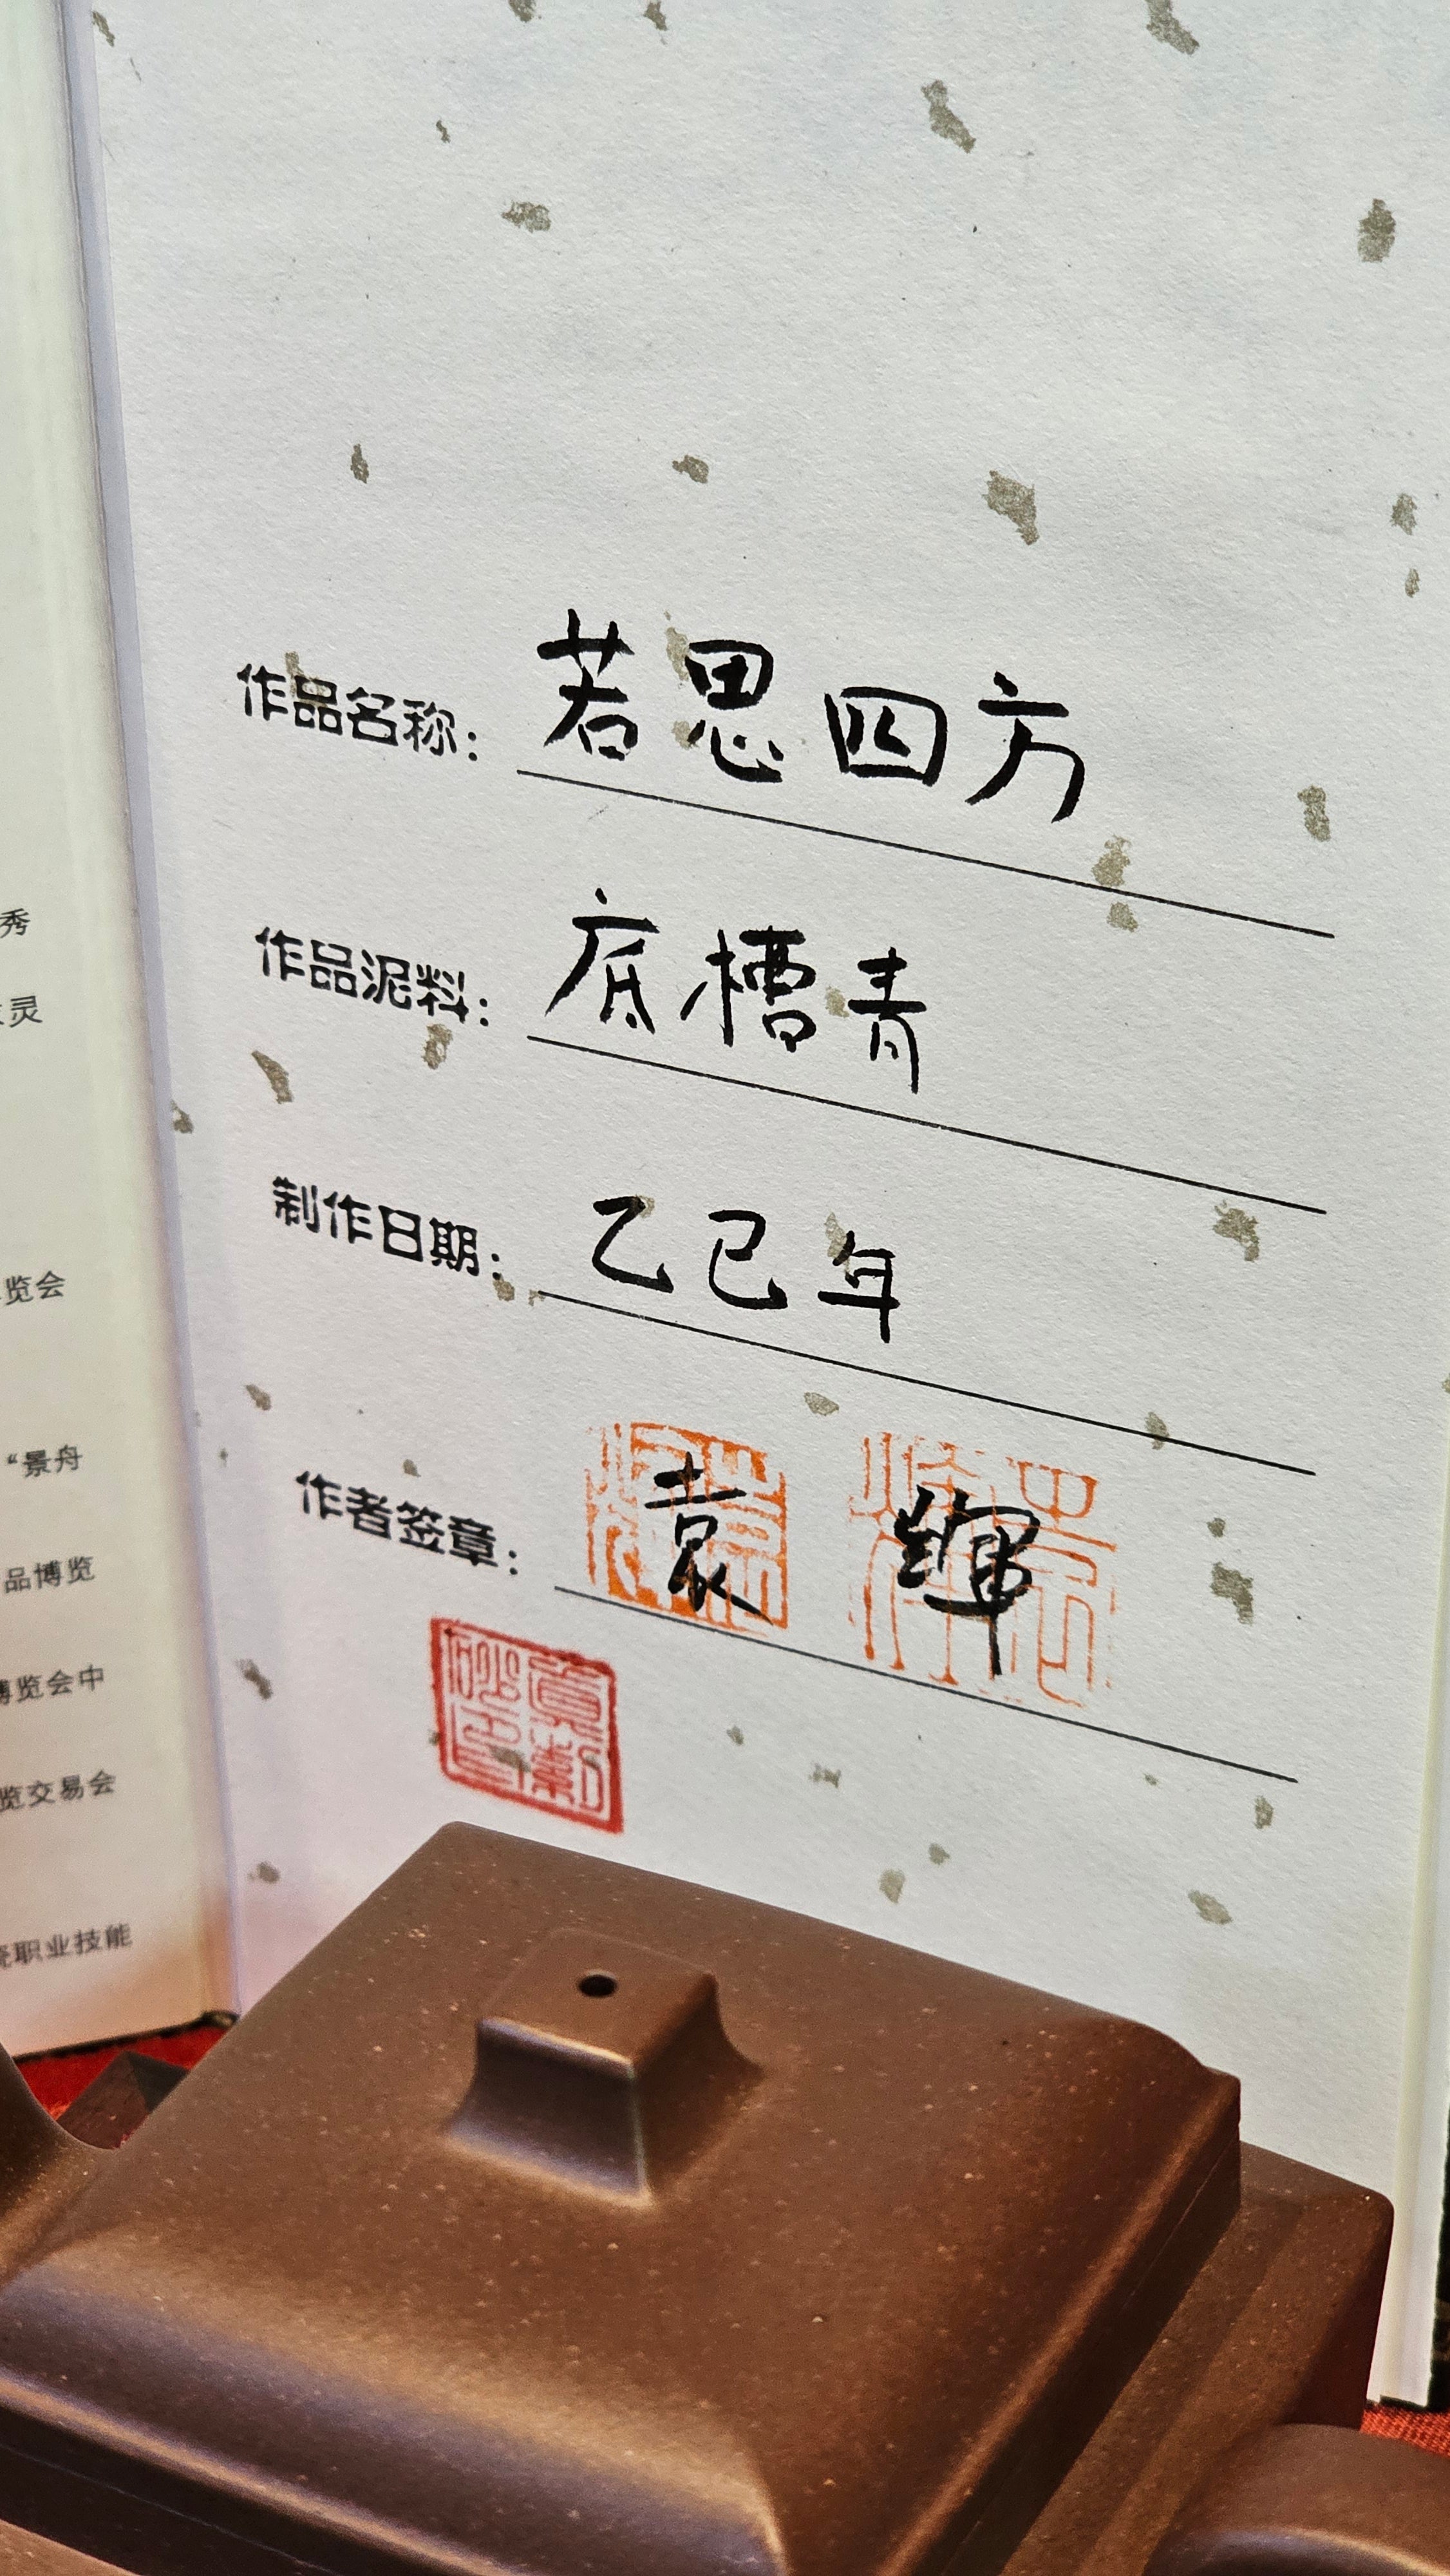 秀
灵
览会
“景舟
品博览
博览会中
览交易会
瓷职业技能
作品名称：若思四方
作品泥料：底槽青
制作日期：乙巳年
作者签章：袁辉